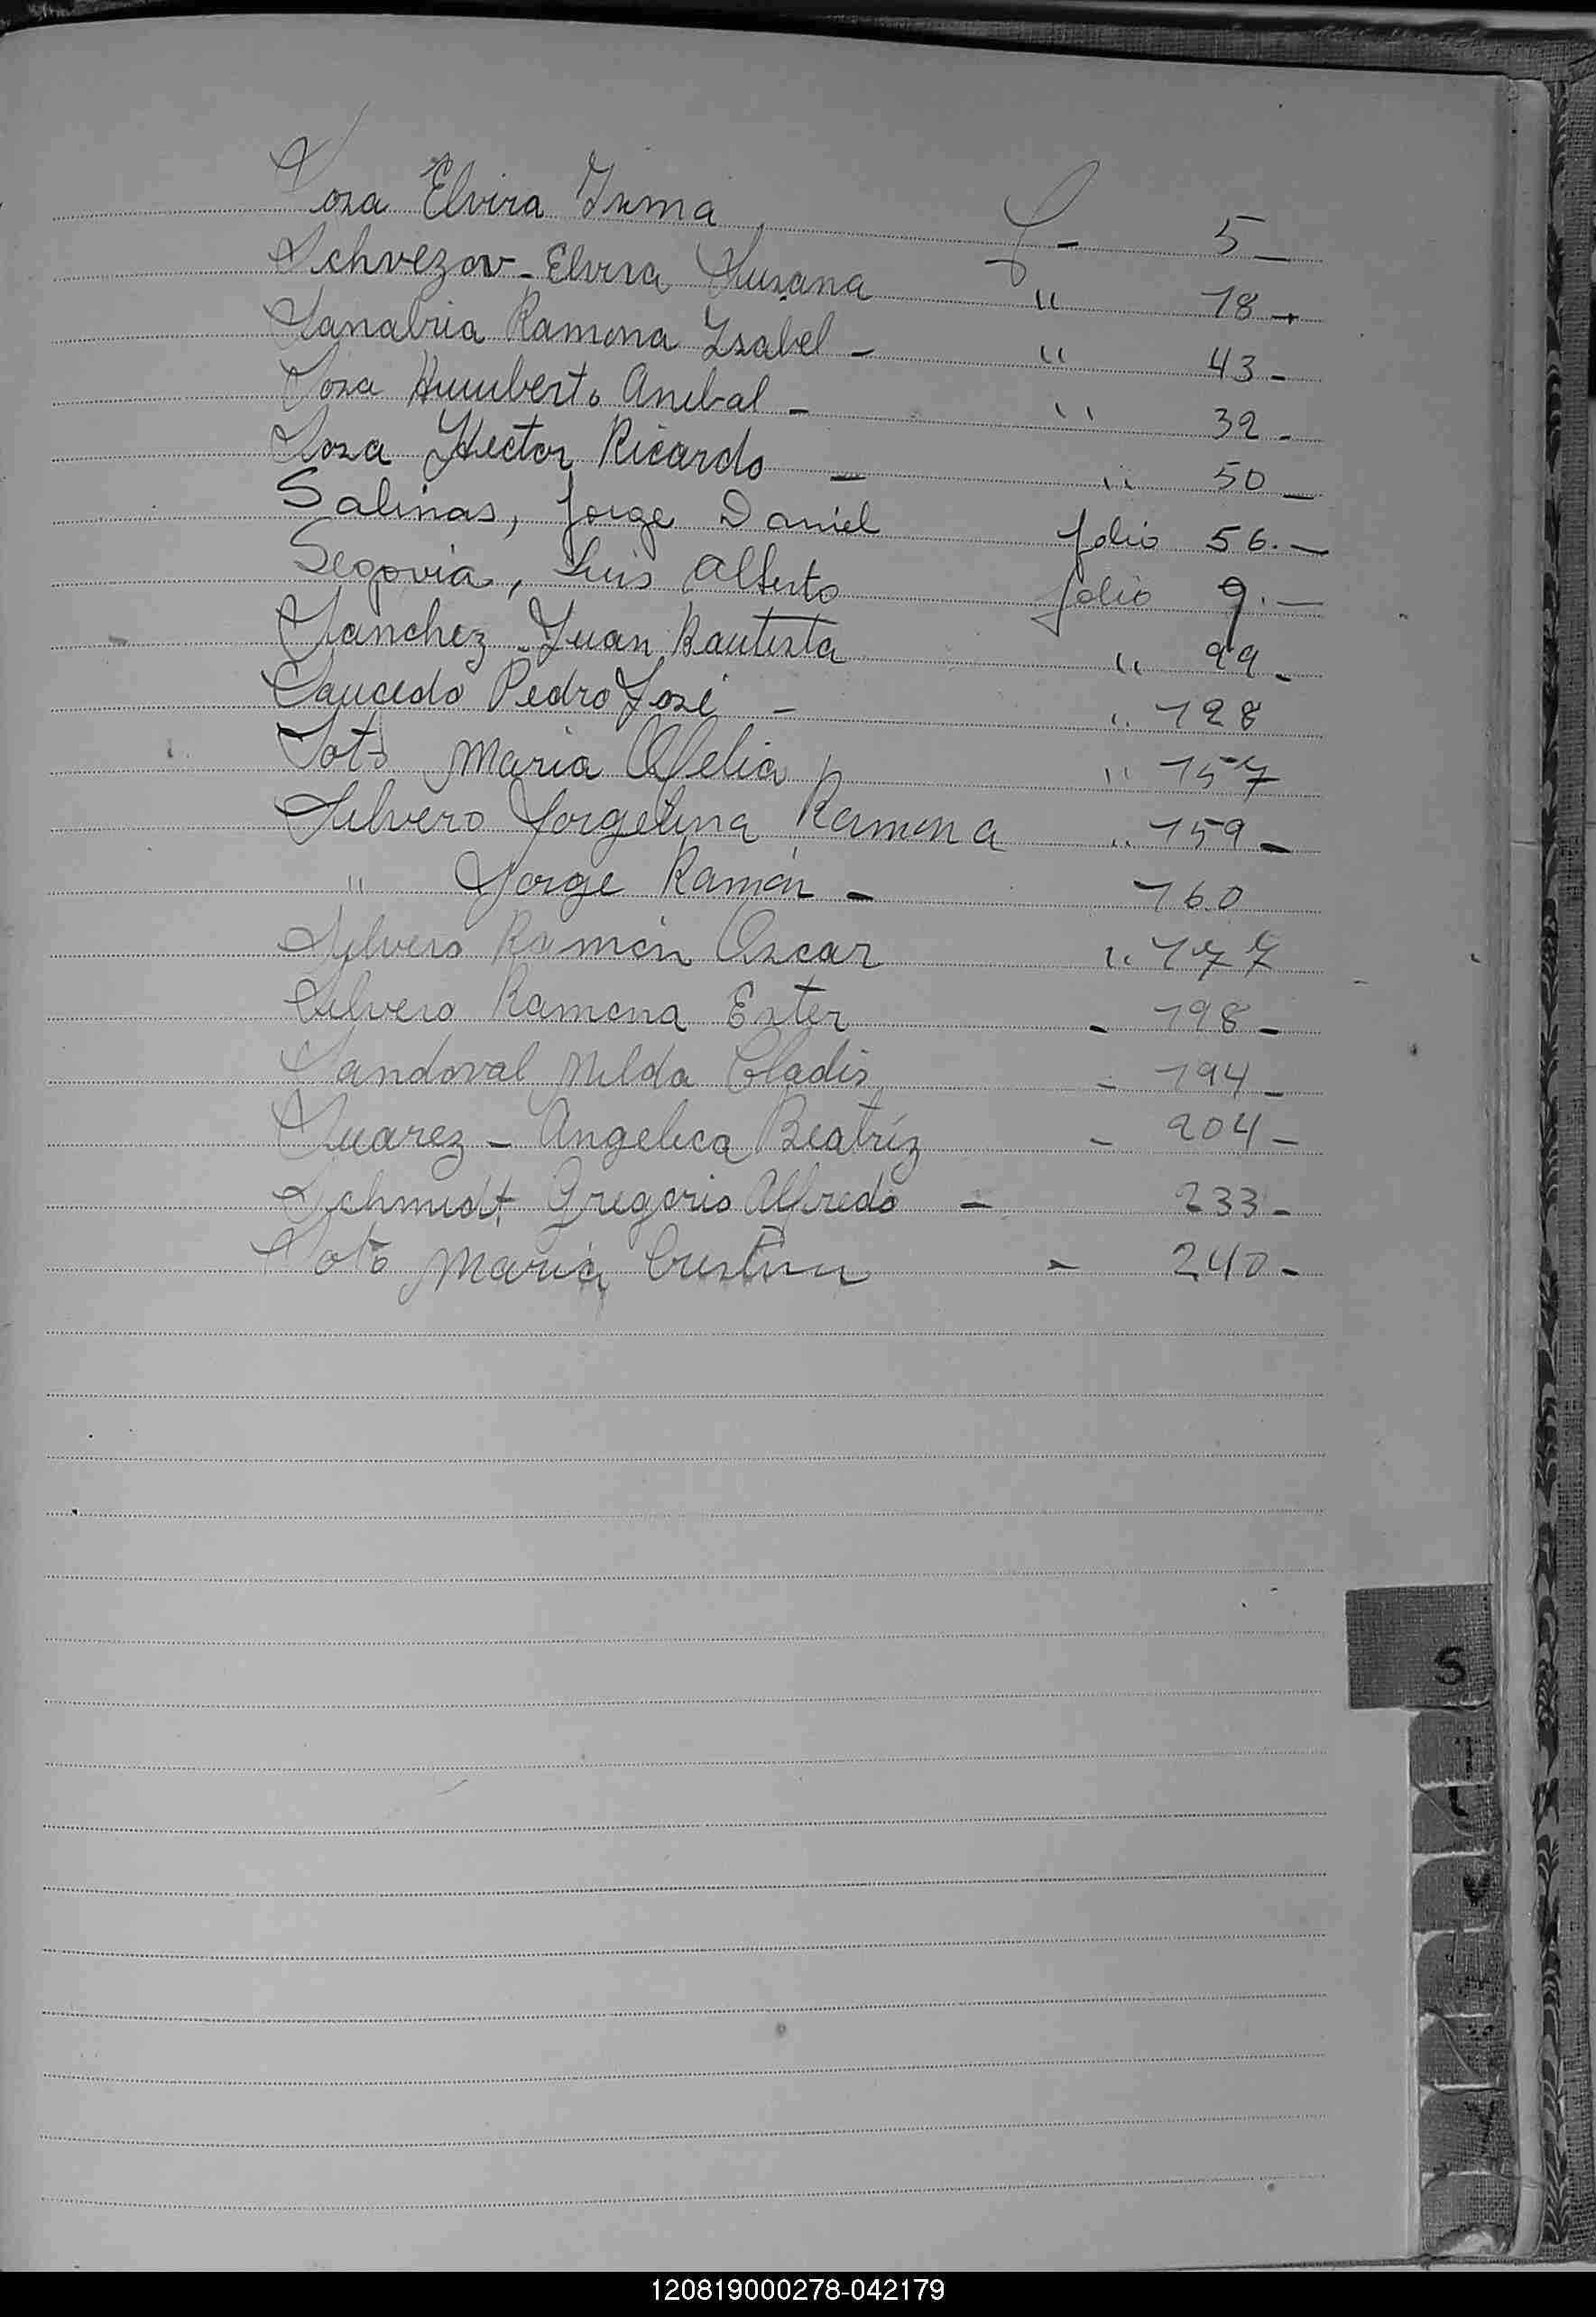 Sosa Elvira Irma f - 5 -
Schvezov - Elvira Susana " 18 -
Sanabria Ramona Isabel - " 43 -
Sosa Humberto Anibal - " 32 -
Sosa Hector Ricardo - " 50 -
Salinas, Jorge Daniel folio 56. -
Segovia, Luis Alberto folio 9. -
Sanchez - Juan Bautista " 99 -
Saucedo Pedro José - " 128
Soto Maria Ofelia " 157
Silvero Jorgelina Ramona " 159 -
" Jorge Ramón - 160
Silvero Ramón Oscar " 177
Silvero Ramona Ester - 198 -
Sandoval Nilda Gladis - 194 -
Suarez - Angelica Beatríz - 204 -
Schmidt Gregorio Alfredo - 233 -
Soto Maria Cristina - 240 -
S
120819000278-042179